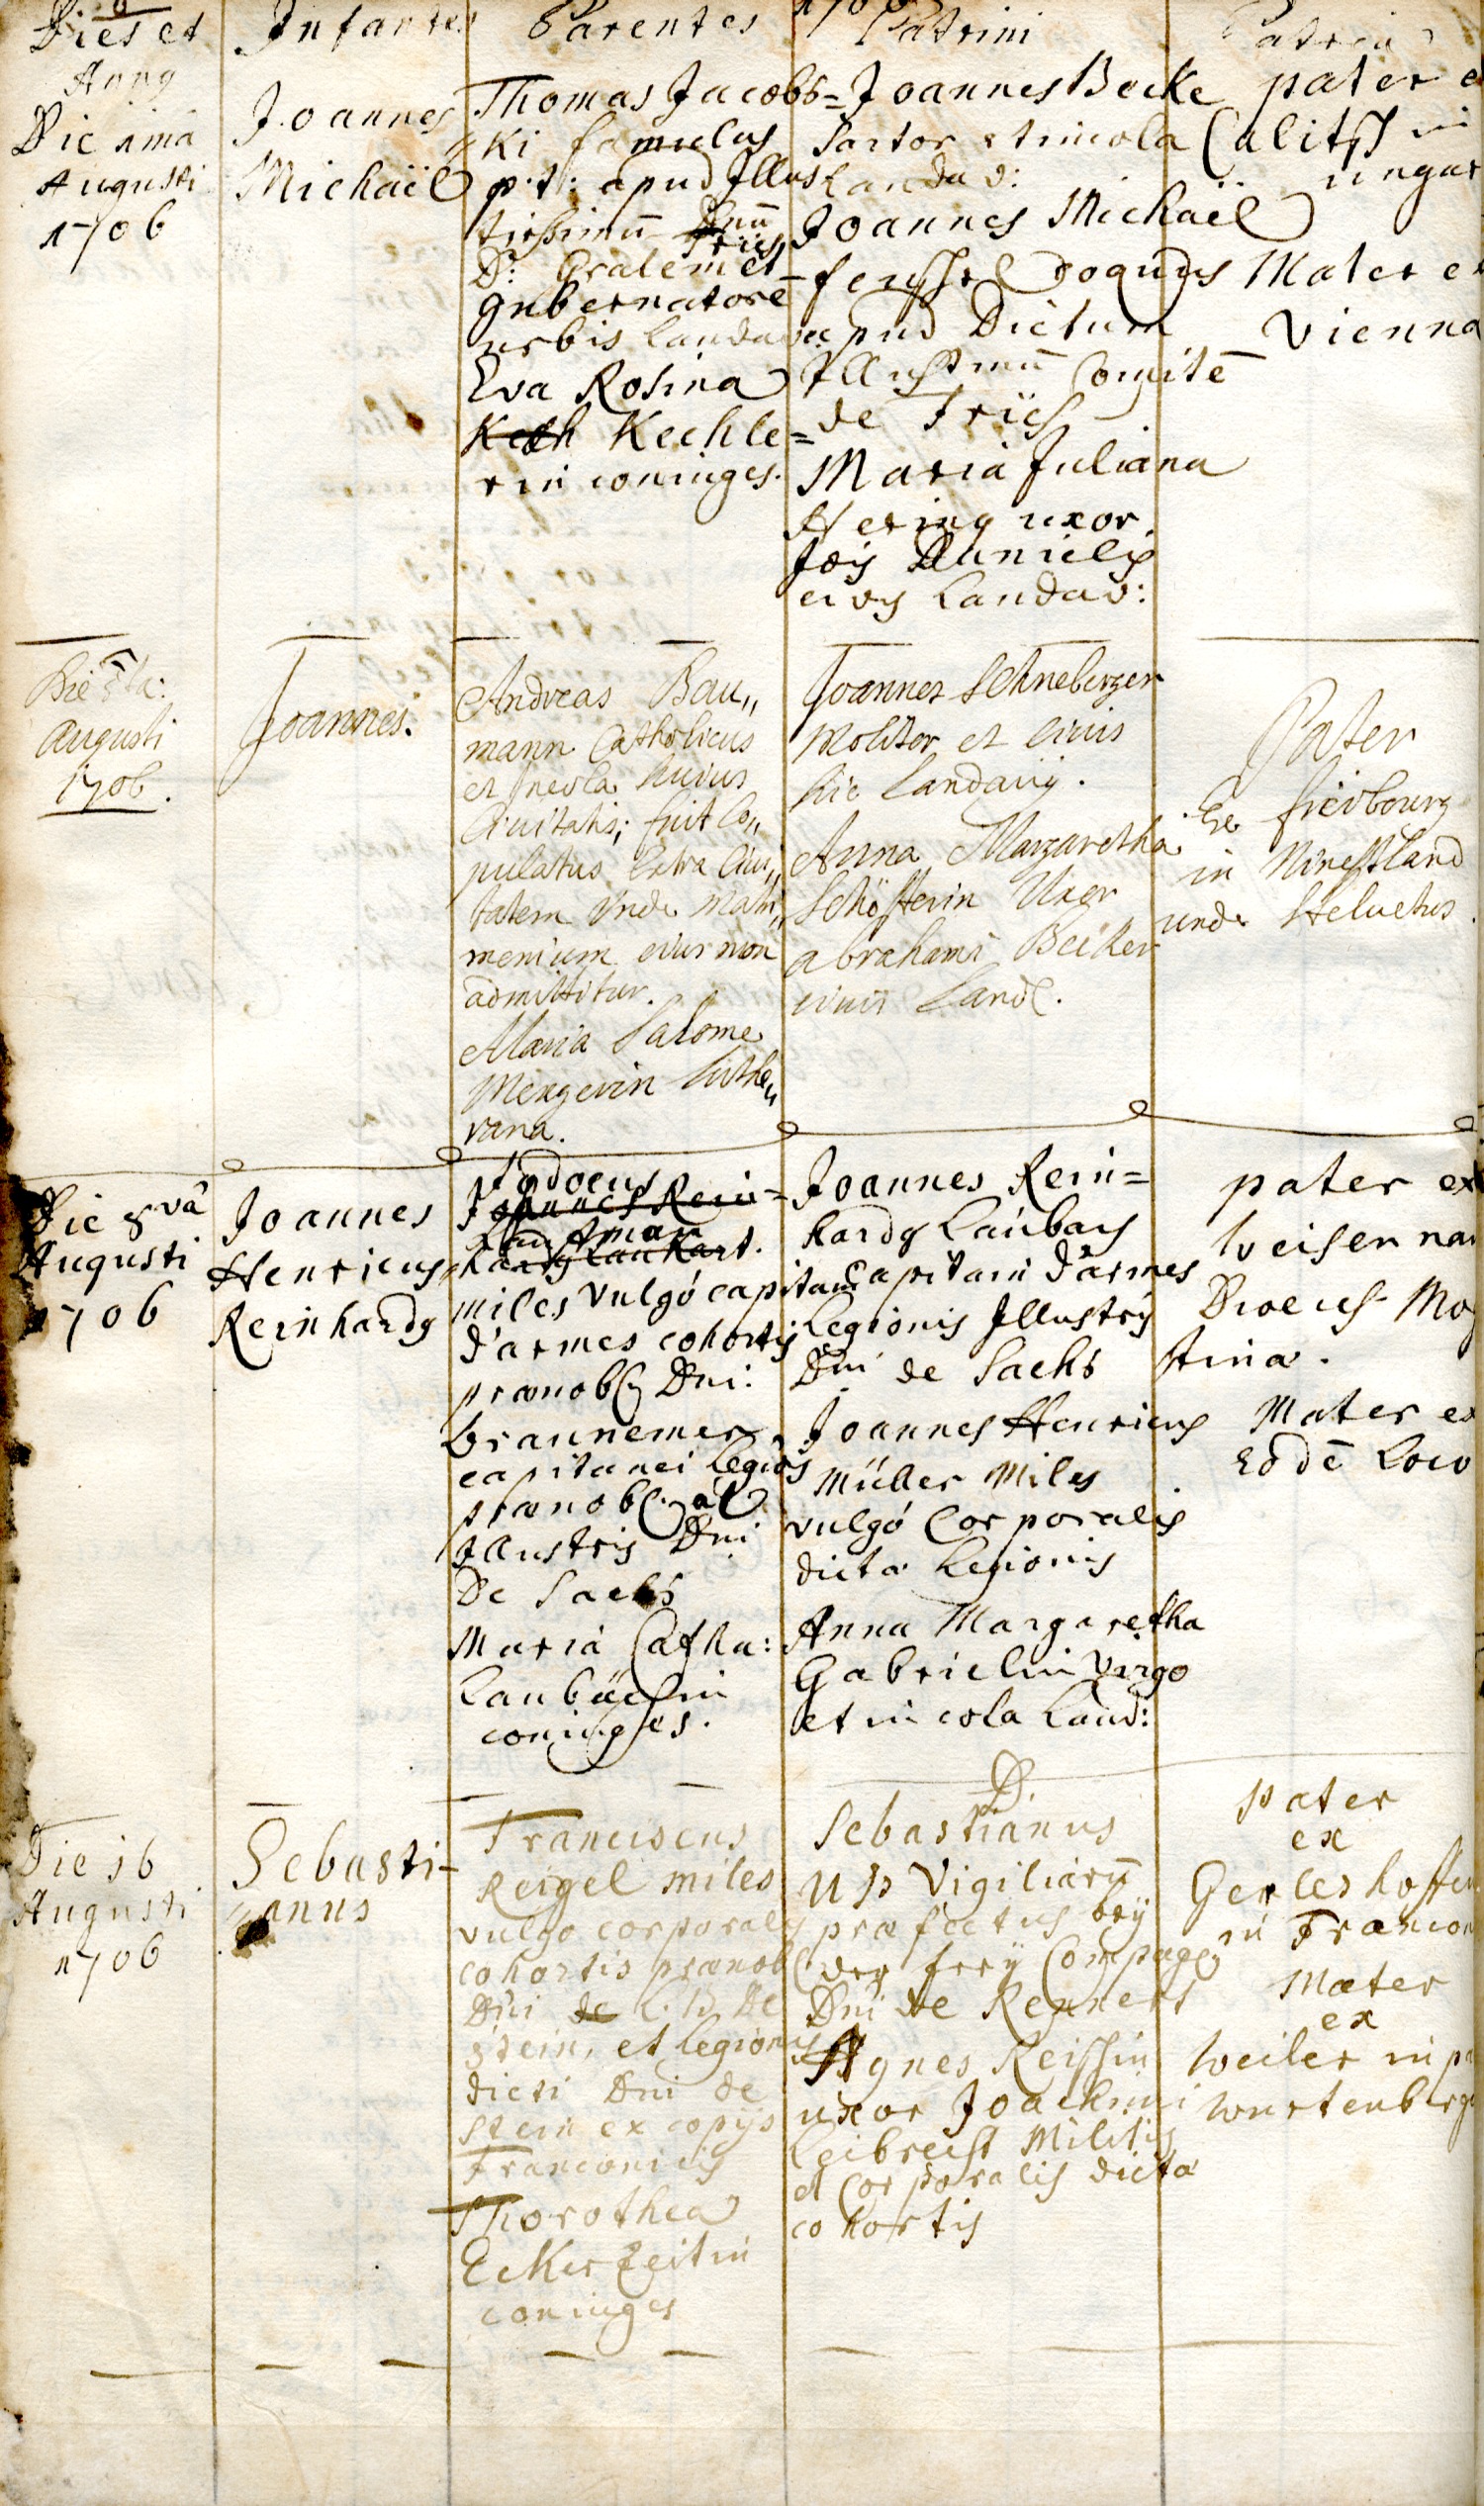 Dies et
Anno
Infantes
Parentes
1706
Patrini
Patria
Die 1mâ
Augusti
1706
Joannes
Michaël
Thomas Jacobs=
ki famulus
p.t: apud Illus
trissimū Dnū
D: Gralem et
gubernatorē
urbis Landav:
Eva Rosina
Kech Kechle=
rin coniuges.
Joannes Becke
Sartor et incola
Landav:
Joannes Michaël
coquus
apud Dictum
Illustrmū Comitē
de Friës
Maria Juliana
Hering uxor
Jōis Danielis
civis Landav:
pater e
Calitsch in
ungar
Mater ex
Vienna
Die 5ta:
Augusti
1706.
Joannes.
Andreas Bau„
mann Catholicus
et Incola huius
Ciuitatis; fuit Co„
pulatus Extra Ciui„
tatem vnde matri„
monium eius non
admittitur.
Maria Salome
Mezgerin Luthe„
rana.
Joannes Schneberger
Molitor et Ciuis
hic Landavij.
Anna Margaretha
Uxor
abrahami Becker
ciuis Land.
Pater
Ex freibourg
in
unde Heluetus.
Die 8vâ
Augusti
1706
Joannes
Henricus
Reinhardg
Jodocus
Joannes Rein=
hardg Laukart.
miles vulgó capitain
d'armes cohortis
prænobl. Dni:
braunemer
capitanei Legiōs
prænobl. ac
Illustris Dni
De Sachs
Maria Catha:
Laubächin
coniuges.
Joannes Rein=
hardg Laúbach
Capitain d'armes
Legionis Illustris
Dni de Sachs
Joannes Henricus
Müller Miles
vulgó Corporalis
dictæ Legionis
Anna Margaretha
Gabrielin Virgo
et incola Land:
pater ex
Weisenau
Dioeces Mog
tina.
Mater ex
Eodē Loco
Die 16
Augusti
1706
Sebasti-
anus
Franciscus
Reigel miles
vulgo corporalis
cohortis prænobl.
Dni de L. B. De
Stein, et Legionis
dicti Dni de
Stein ex copijs
Franconicis
Thorothea
Eckerzeitin
coniuges
D.
Sebastianus
Up Vigiliarū
præfectus beÿ
der freÿ Compagg
Dni de Rennert
Agnes Reissin
uxor Joachimi
Leibrecht Militis
et Corporalis dictæ
cohortis
pater
ex
Gerlershoffen
in Francon
Mater
ex
Weiler in
Wurtenberg